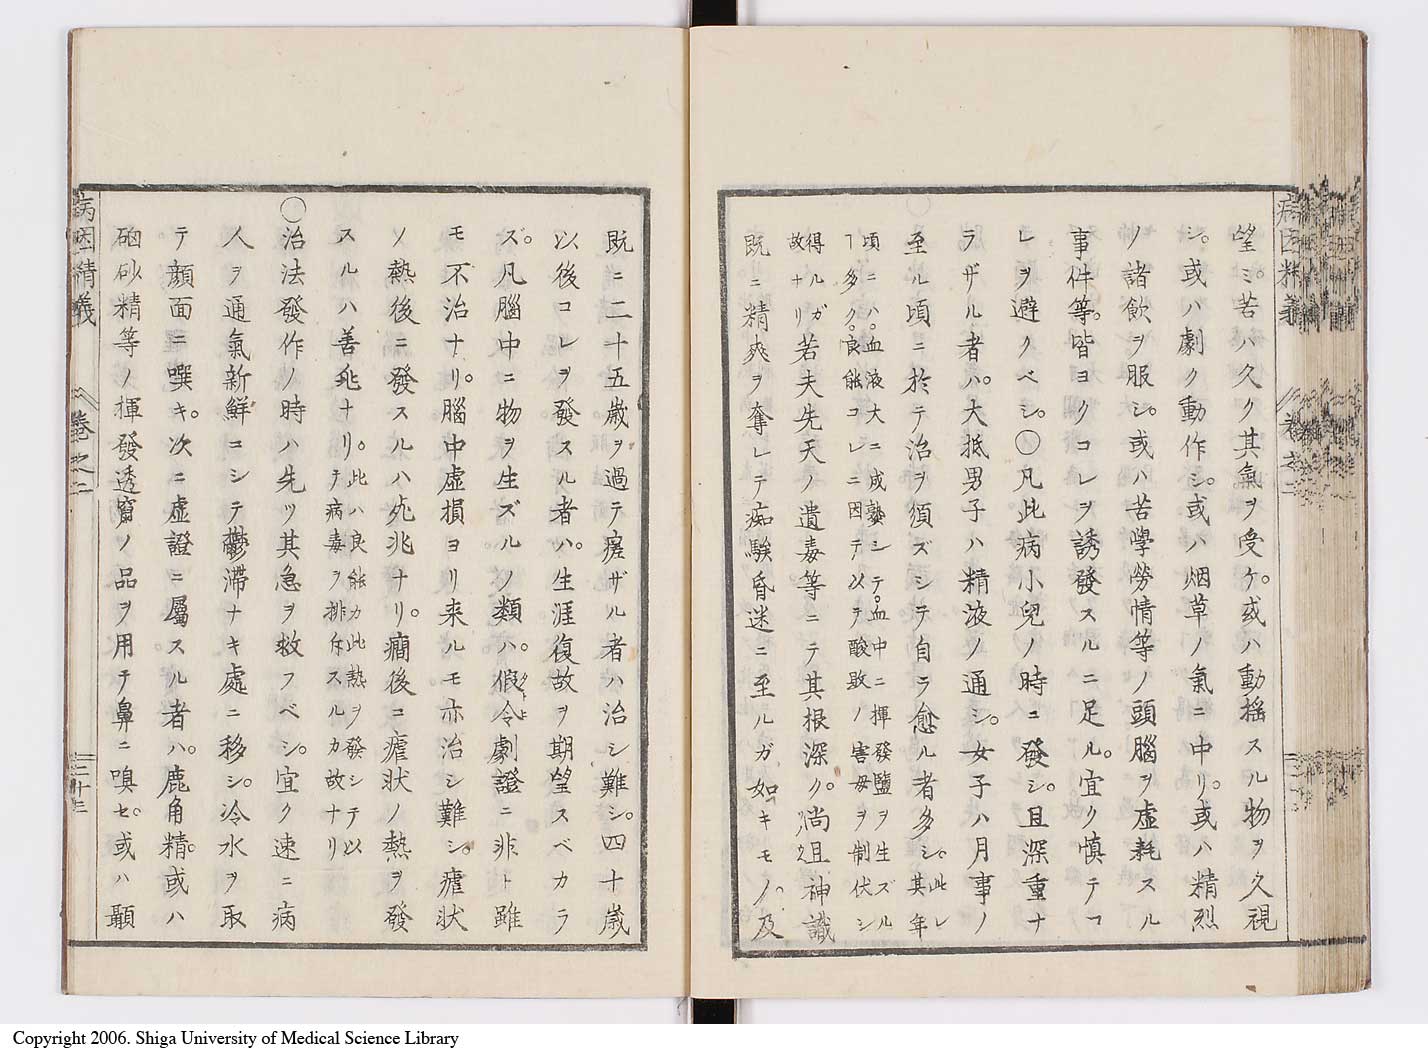 病因精義
卷之二
望ミ。若ハ久ク其氣ヲ受ケ。或ハ動揺スル物ヲ久視
シ。或ハ劇ク動作シ。或ハ烟草ノ氣ニ中リ。或ハ精烈
ノ諸飲ヲ服シ。或ハ苦學勞情等ノ頭腦ヲ虚耗スル
事件等。皆ヨクコレヲ誘發スルニ足ル。宜ク慎テコ
レヲ避クベシ。〇凡此病小兒ノ時ニ發シ。且深重ナ
ラザル者ハ。大抵男子ハ精液ノ通シ。女子ハ月事ノ
至ル頃ニ於テ治ヲ須ズシテ自ラ愈ル者多シ。此レ其年
頃ニハ。血液大ニ成熟シテ。血中ニ揮發鹽ヲ生ズル
ヿ多ク。良能コレニ因テ以テ酸敗ノ害毎ヲ制伏シ
得ルガ故ナリ
若夫先天ノ遺毒等ニテ其根深ク。尚且神識
既ニ精爽ヲ奪レテ痴騃昏迷ニ至ルガ如キモノ。及
既ニ二十五歳ヲ過テ瘥ザル者ハ治シ難シ。四十歳
以後コレヲ發スル者ハ。生涯復故ヲ期望スベカラ
ズ。凡腦中ニ物ヲ生ズルノ類ハ。假令劇證ニ非ト雖
モ不治ナリ。腦中虚損ヨリ来ルモ亦治シ難シ。瘧状
ノ熱後ニ發スルハ凶兆ナリ。癇後ニ瘧状ノ熱ヲ發
スルハ善兆ナリ。此ハ良能力此熱ヲ發シテ以
テ病毒ヲ排斥スルカ故ナリ
〇治法發作ノ時ハ先ツ其急ヲ救フベシ。宜ク速ニ病
人ヲ通氣新鮮ニシテ鬱滞ナキ處ニ移シ。冷水ヲ取
テ顔面ニ噀キ。次ニ虚證ニ屬スル者ハ。鹿角精。或ハ
硇砂精等ノ揮發透竄ノ品ヲ用テ鼻ニ嗅セ。或ハ顳
病因精義
卷之二
二十三
Copyright 2006. Shiga University of Medical Science Library